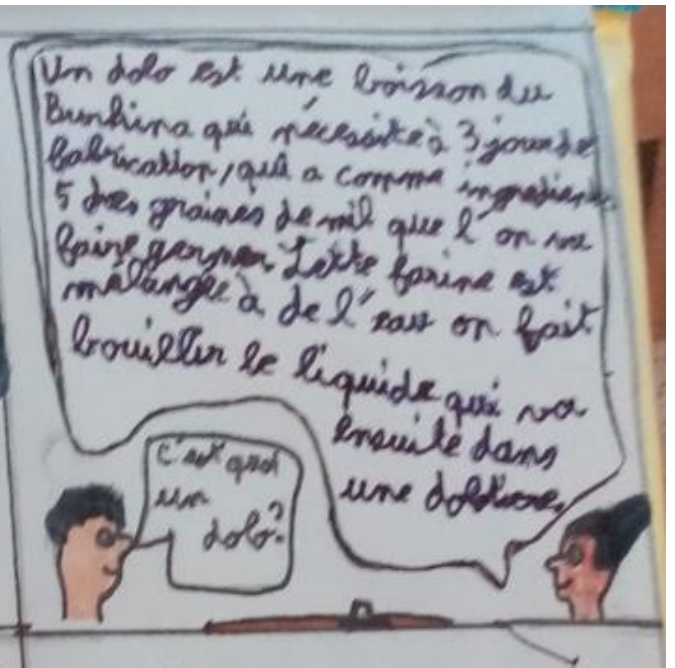 c'est quoi
un
dolo?
Un dolo est une boisson du
Burkina qui nécessite à 3 jours de
fabrication, qui a comme ingredients
5 des graines de mil que l'on va
faire germer. Cette farine est
mélangée à de l'eau on fait
bouillir le liquide qui va
ensuite dans
une